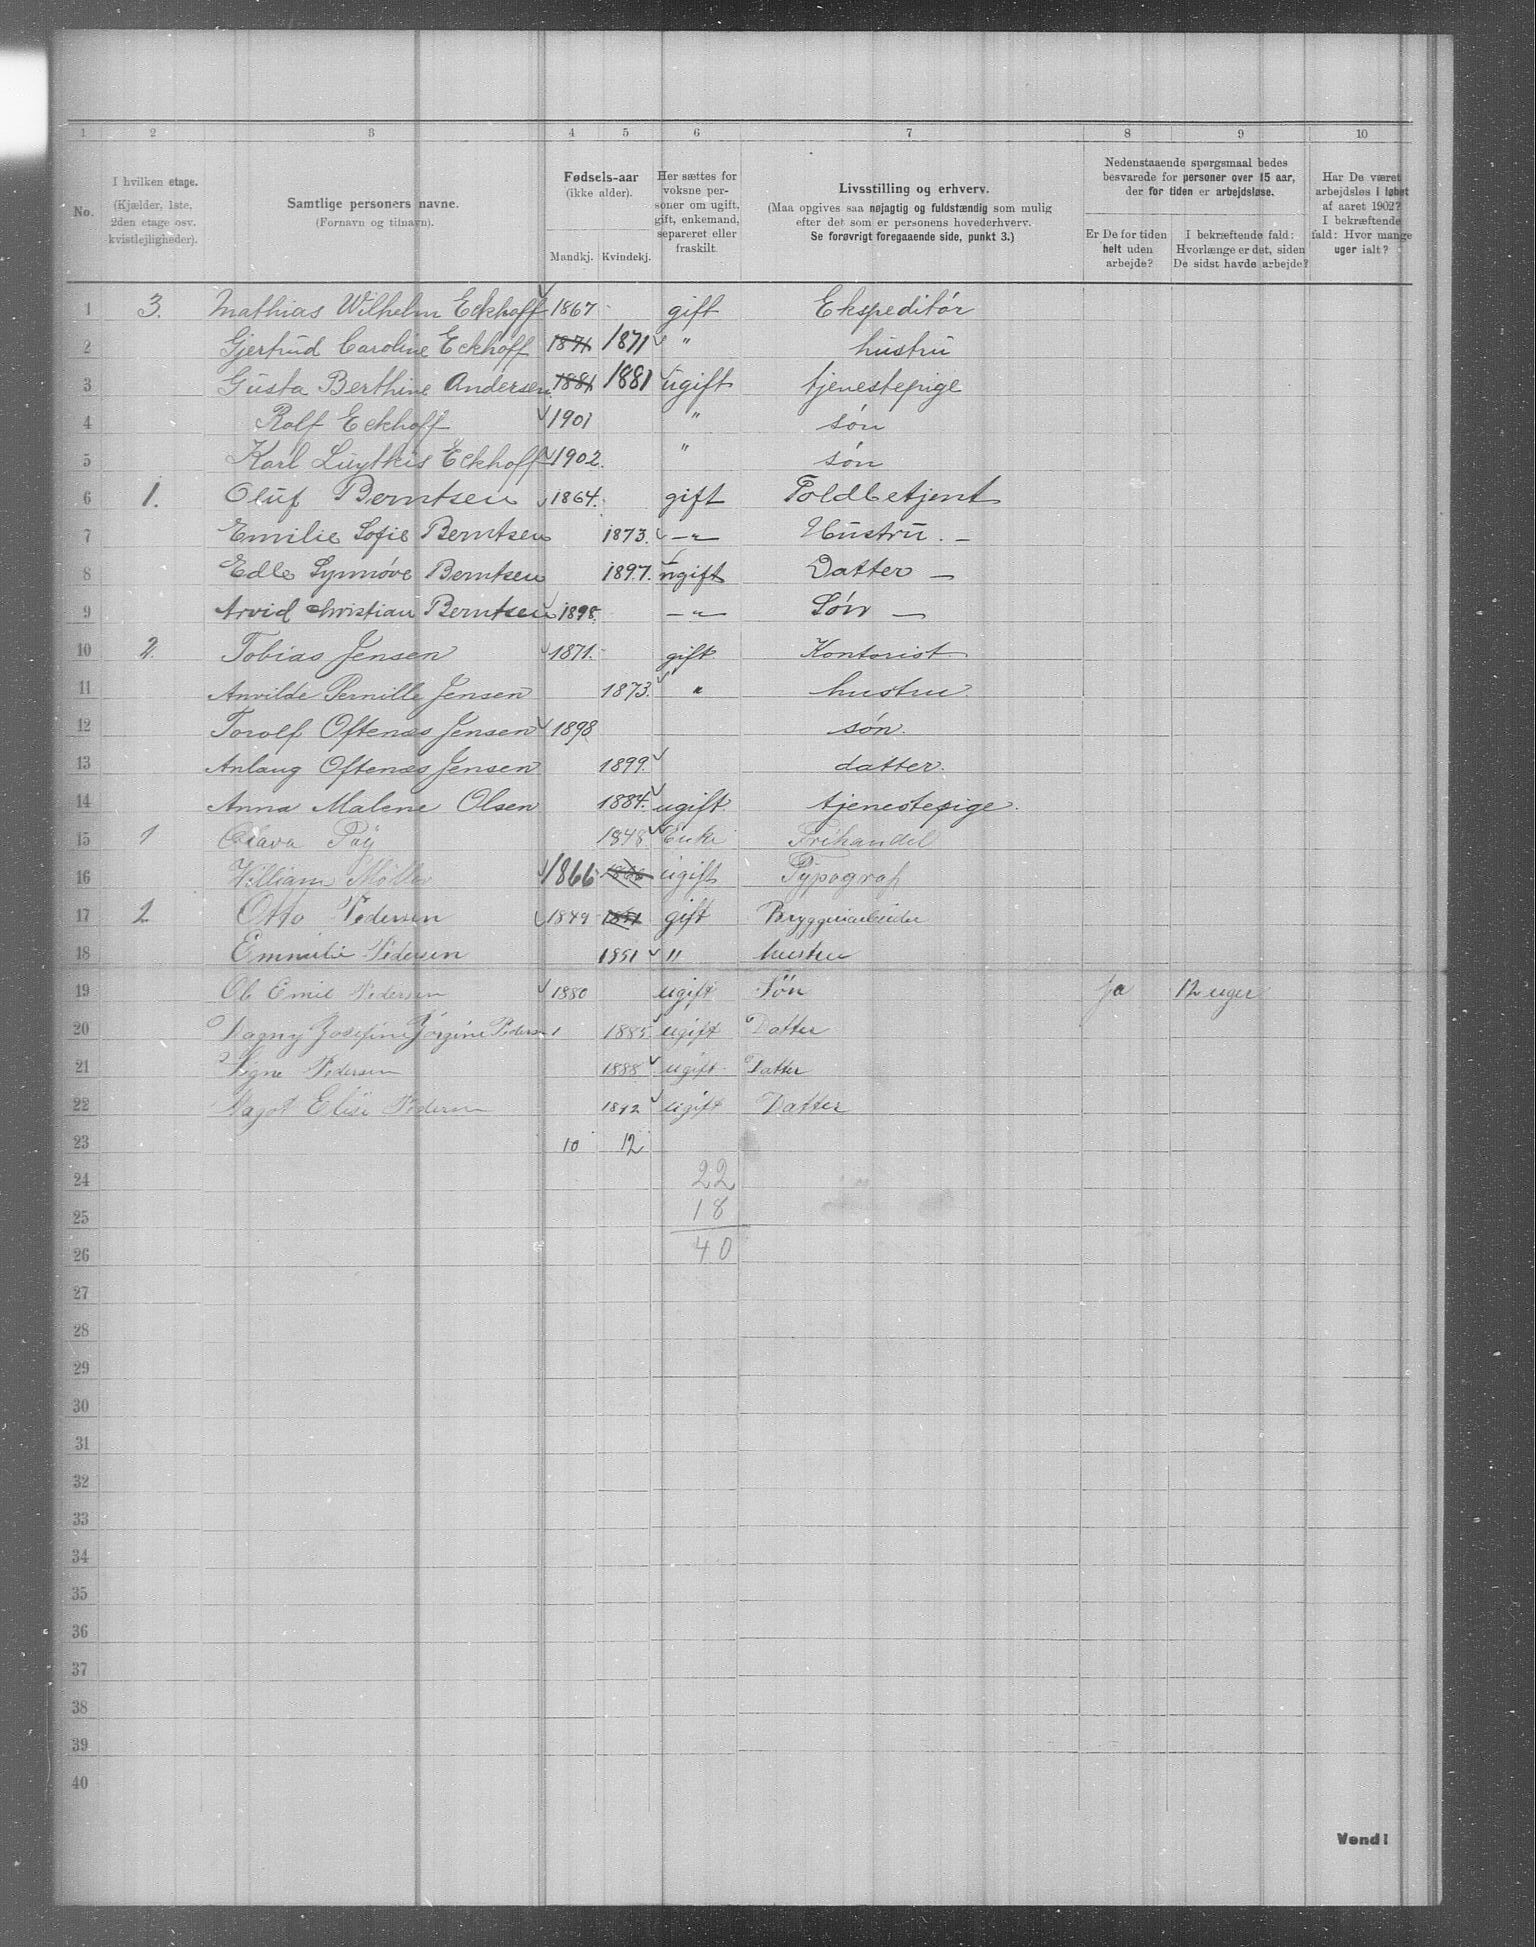 1 2 3 4 5 6 7 8 9 10
No.
I hvilken etage.
(Kjælder, 1ste,
2den etage osv.
kvistlejligheder).
Samtlige personers navne.
(Fornavn og tilnavn).
Fødsels-aar
(ikke alder).
Mandkj. Kvindekj.
Her sættes for
voksne per-
soner om ugift,
gift, enkemand,
separeret eller
fraskilt.
Livsstilling og erhverv.
(Maa opgives saa nøjagtig og fuldstændig som mulig
efter det som er personens hovederhverv.
Se forøvrigt foregaaende side, punkt 3.)
Nedenstaaende spørgsmaal bedes
besvarede for personer over 15 aar,
der for tiden er arbejdsløse.
Er De for tiden
helt uden
arbejde?
I bekræftende fald:
Hvorlænge er det, siden
De sidst havde arbejde?
Har De været
arbejdsløs i løbet
af aaret 1902?
I bekræftende
fald: Hvor mange
uger ialt?
1 3. Mathias Wilhelm Eckhoff 1867 gift Ekspeditør
2 Gjertrud Caroline Eckhoff 1871 1871 " hustru
3 Gusta Berthine Andersen 1881 1881 ugift tjenestepige
4 Rolf Eckhoff 1901 " søn
5 Karl Luytkis Eckhoff 1902. " søn
6 1. Oluf Berntsen 1864. gift Toldbetjent
7 Emilie Sofie Berntsen 1873. — " — Hustru. —
8 Edle Synnøve Berntsen 1897. ugift Datter —
9 Arvid Christian Berntsen 1898. — " — Søn —
10 2. Tobias Jensen 1871. gift. Kontorist.
11 Anvilde Pernille Jensen 1873. " hustru.
12 Torolf Oftenæs Jensen 1898 søn.
13 Anlaug Oftenæs Jensen 1899. datter.
14 Anna Malene Olsen 1884. ugift. tjenestepige.
15 1 Olava 1848 Enke Frihandel
16 William Møller 1866 1866 ugift Typograf
17 2 Otto Pedersen 1849 1851 gift Bryggeriarbeider
18 Emmilie Pedersen 1851 " hustru
19 Ole Emil Pedersen 1880 ugift Søn ja 12 uger
20 Dagny Josefine Jörgine Pedersen 1885 ugift Datter
21 Signe Pedersen 1888 ugift Datter
22 Magot Elise Pedersen 1892 ugift Datter
23 10 12
24 22
25 18
26 40
27
28
29
30
31
32
33
34
35
36
37
38
39
40
Vend!